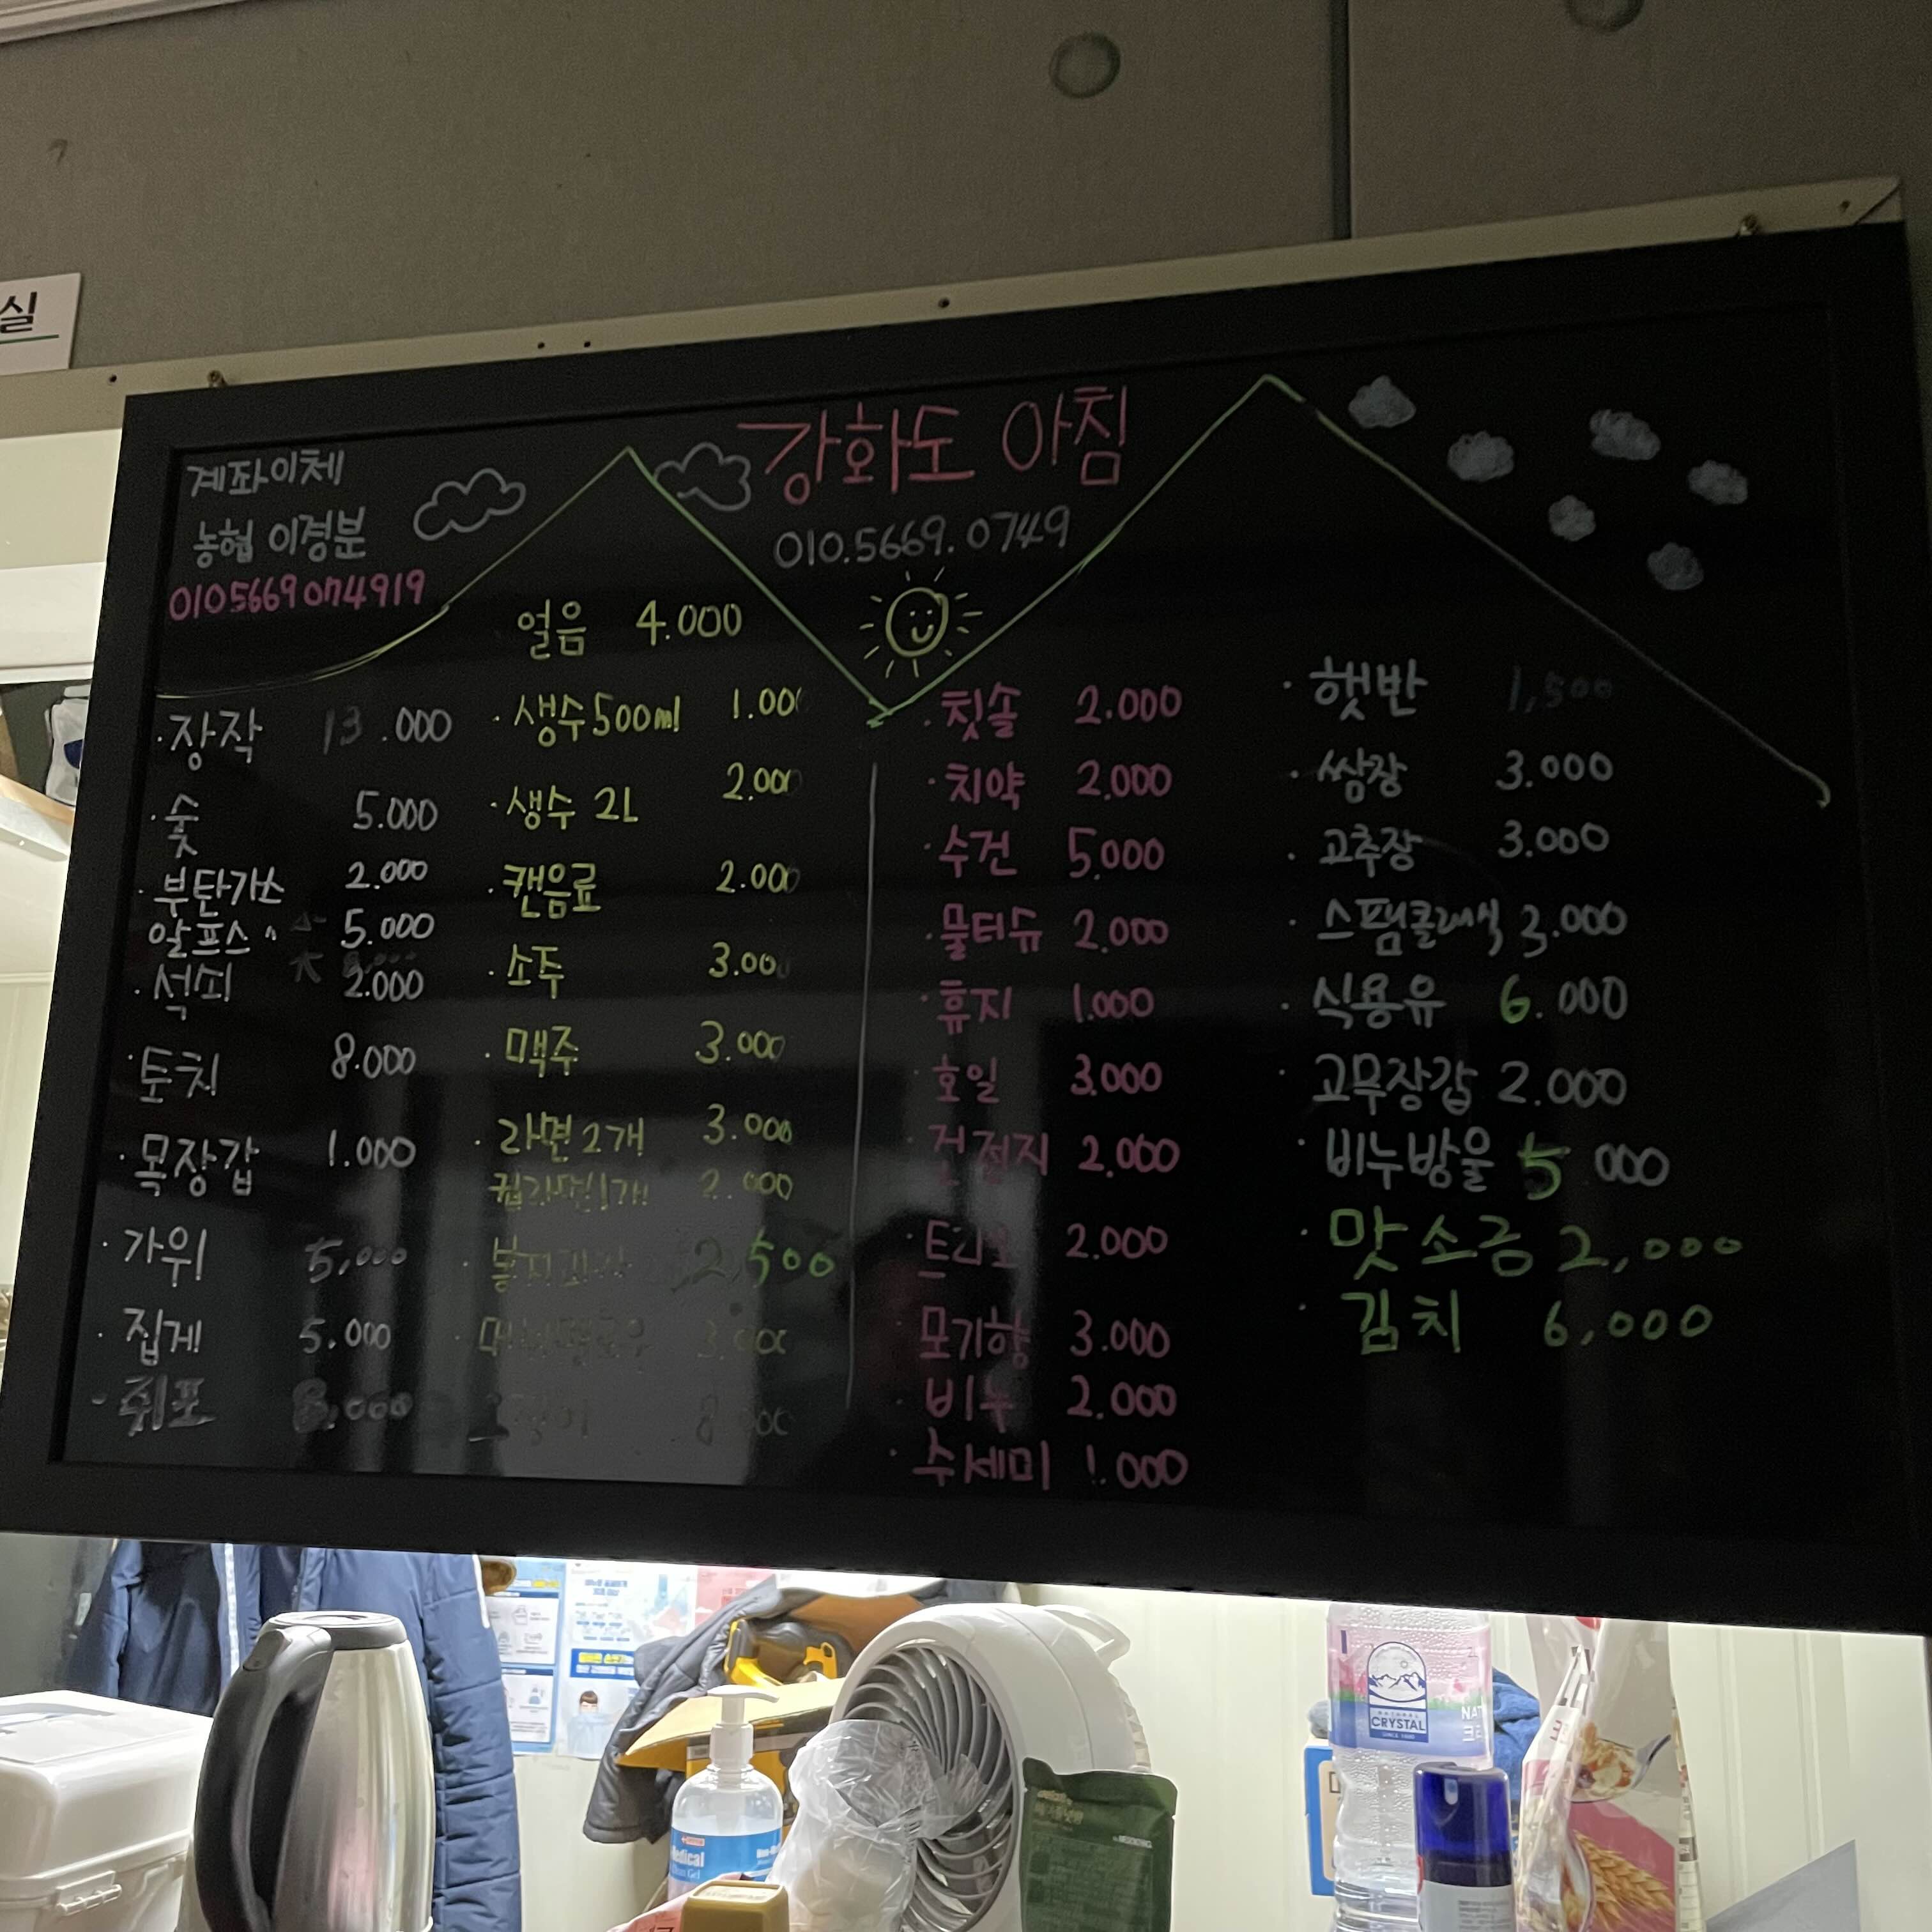 실
강화도 아침
010.5669.0749
계좌이체
농협 이경분
0105669074919
얼음 4.000
·장작 13.000
·숯 5.000
·부탄가스 2.000
알프스 〃 小 5.000
大
·석쇠 2.000
·토치 8.000
·목장갑 1.000
·가위 5,000
·집게 5.000
·쥐포 8,000
·생수 500ml 1.000
·생수 2L 2.000
·캔음료 2.000
·소주 3.000
·맥주 3.000
·라면 2개 3.000
컵라면 1개 2.000
·봉지과자 2,500
3.000
8.000
·칫솔 2.000
·치약 2.000
·수건 5.000
·물티슈 2.000
·휴지 1.000
·호일 3.000
·건전지 2.000
·트리오 2.000
·모기향 3.000
·비누 2.000
·수세미 1.000
·햇반 1,500
·쌈장 3.000
·고추장 3.000
·스팸클래식 3.000
·식용유 6.000
·고무장갑 2.000
·비누방울 5.000
·맛소금 2,000
·김치 6,000
NATURAL
CRYSTAL
SINCE 1990
Medical
Gel